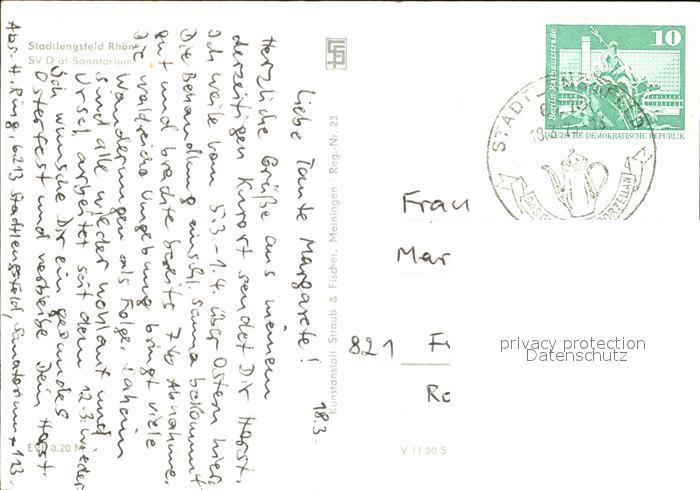 Stadtlengsfeld Rhön
SV Diät-Sanatorium
18.3.
Liebe Tante Margarete!
Herzliche Grüße aus meinem
derzeitigen Kurort sendet Dir Horst.
Ich weile vom 5.3.-1.4. über Ostern hier.
Die Behandlung einschl. Sauna bekommt
gut und brachte bereits 7 kg Abnahme.
Die waldreiche Umgebung bringt viele
Wanderungen als Folge. Daheim
sind alle wieder wohlauf und
Ursel arbeitet seit dem 12.3. wieder.
Ich wünsche Dir ein gesundes
Osterfest und verbleibe Dein Horst.
Abs. H. Ring, 6213 Stadtlengsfeld, Sanatorium
EVP 0,20 M
Kunstanstalt Straub & Fischer, Meiningen · Reg.-Nr. 23
V 11 50 S
10
Berlin, Rathausstraße
DEUTSCHE DEMOKRATISCHE REPUBLIK
Frau
Mar
821
privacy protection
Datenschutz